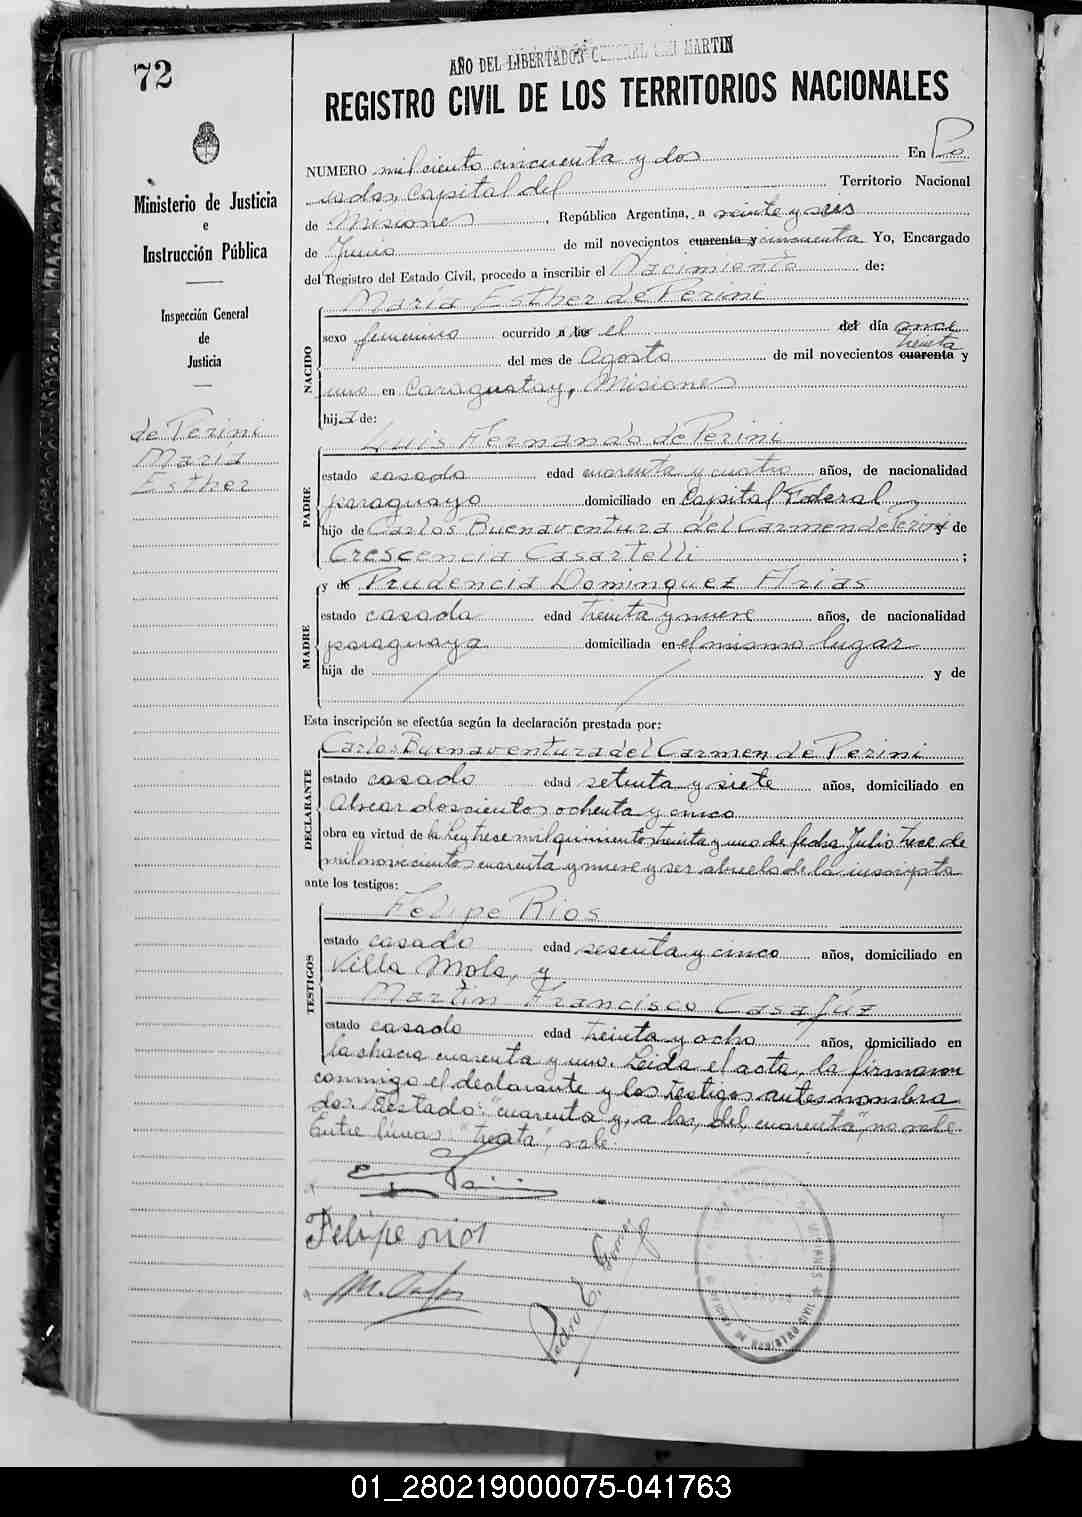 72
AÑO DEL LIBERTADOR GENERAL SAN MARTIN
REGISTRO CIVIL DE LOS TERRITORIOS NACIONALES
Ministerio de Justicia
e
Instrucción Pública
Inspección General
de
Justicia
de Perini
María
Esther
NUMERO mil ciento cincuenta y dos En Po
sadas, Capital del Territorio Nacional
de Misiones, República Argentina, a veinte y seis
de Junio de mil novecientos cuarenta y cincuenta Yo, Encargado
del Registro del Estado Civil, procedo a inscribir el Nacimiento de:
María Esther de Perini
NACIDO
sexo femenino ocurrido a las el del día once
treinta
del mes de Agosto de mil novecientos cuarenta y
uno en Caraguatay, Misiones
hija de:
Luis Fernando de Perini
PADRE
estado casado edad cuarenta y cuatro años, de nacionalidad
paraguayo domiciliado en Capital Federal
hijo de Carlos Buenaventura del Carmen de Perini y de
Crescencia Casartelli ;
y de Prudencia Dominguez Arias
MADRE
estado casada edad treinta y nueve años, de nacionalidad
paraguaya domiciliada en el mismo lugar
hija de y de
Esta inscripción se efectúa según la declaración prestada por:
Carlos Buenaventura del Carmen de Perini
DECLARANTE
estado casado edad setenta y siete años, domiciliado en
Alvear doscientos ochenta y cinco
obra en virtud de la Ley trece mil quinientos treinta y uno de fecha Julio trece de
mil novecientos cuarenta y nueve y ser abuelo de la inscripta
ante los testigos:
Felipe Rios
TESTIGOS
estado casado edad sesenta y cinco años, domiciliado en
Villa Mola, y
Martín Francisco Casafúz
estado casado edad treinta y ocho años, domiciliado en
la chacra cuarenta y uno. Leída el acta, la firmaron
conmigo el declarante y los testigos antes nombra
dos. Testado: "cuarenta y, a las, del, cuarenta", no vale.
Entre líneas: "treita", vale.
Felipe rios
Pedro
REGISTRO CIVIL
01_280219000075-041763